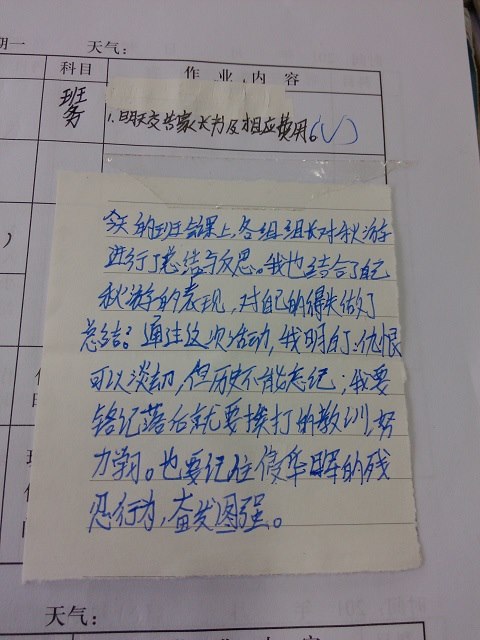 期一
天气：
科目
作业内容
班务
1.明天交告家长书及相应费用。(√)
今天的班会课上，各组组长对秋游
进行了总结与反思。我也结合了自己
秋游的表现，对自己的得失做了
总结。通过这次活动，我明白了：仇恨
可以淡却，但历史不能忘记；我要
铭记落后就要挨打的教训，努
力学习。也要记住侵华日军的残
忍行为，奋发图强。
天气：